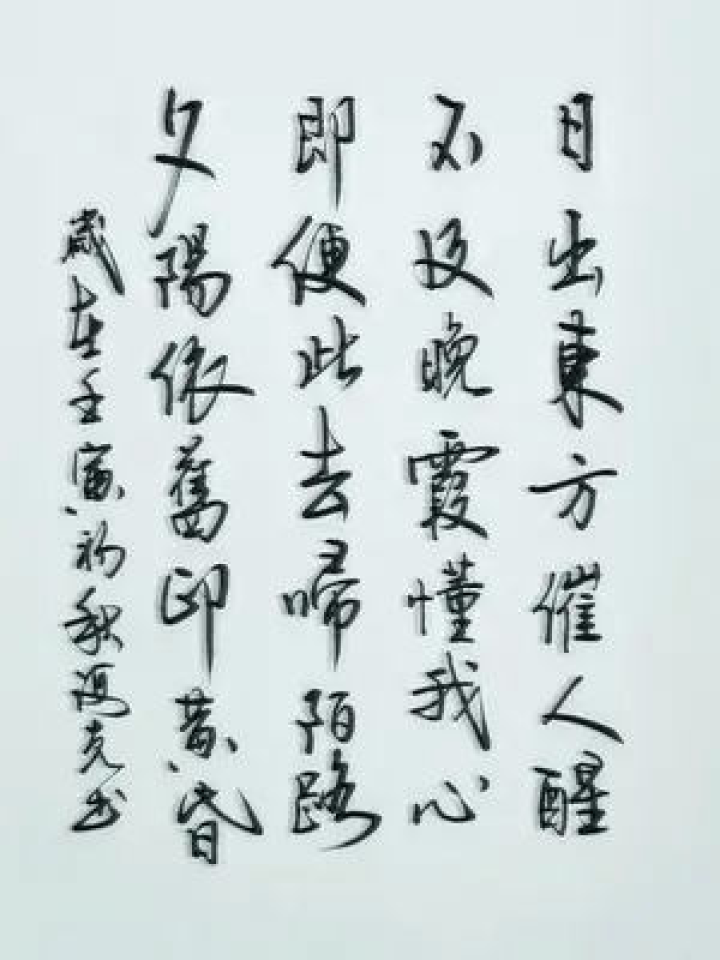 日出東方催人醒
不及晚霞懂我心
即便此去啼陌路
夕陽依舊印黄昏
歲在壬寅初秋冯克书